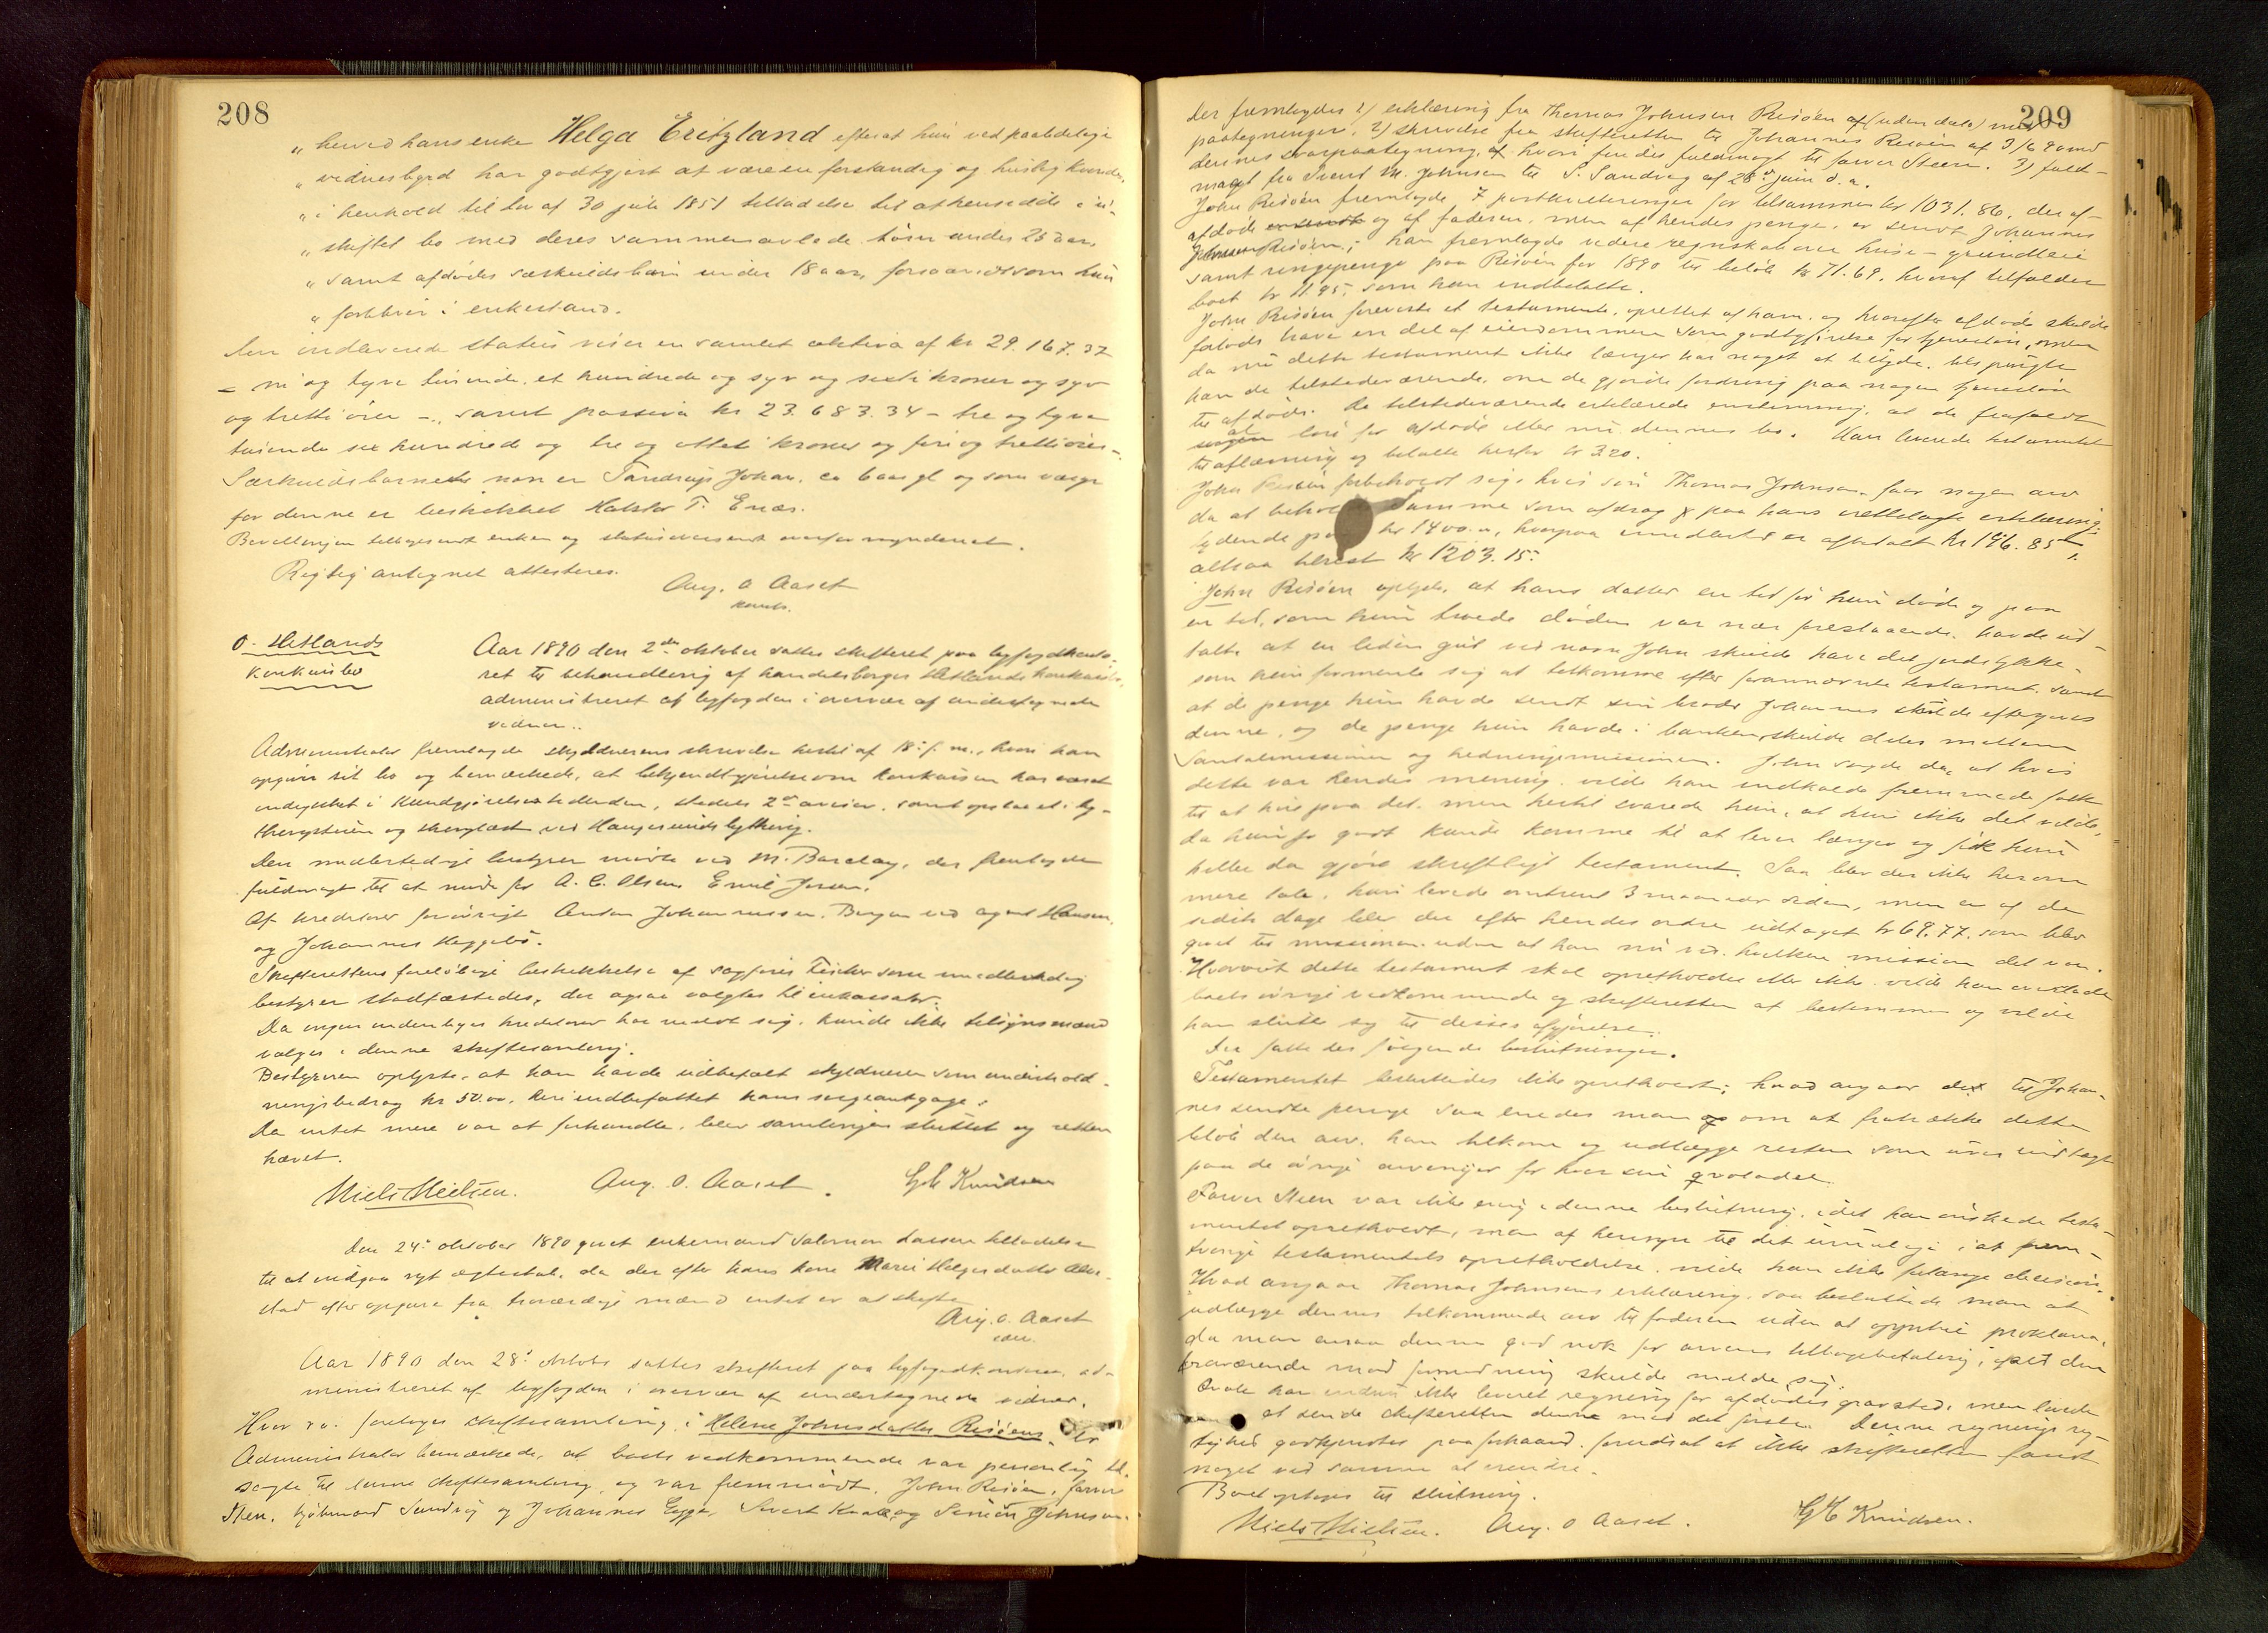 208
„ herved hans enke Helga Eritzland efter at hun ved paabelagte
„ vidnesbyrd har godtgjort at være en forstandig og huslig kvinde,
„ i henhold til lov af 30 juli 1851 tilladelse til at hensidde i ui-
„ skiftet bo med deres sammenavlede børn under 25 aar,
„ samt afdødes særkuldsbarn under 18 aar, forsaavidt som hun
„ forbliver i enkestand.
Den indleverede status viser en samlet aktiva af kr 29.167.37
– ni og tyve tusinde, et hundrede og syv og sexti kroner og syv
og tretti øre –, samt passiva kr 23.683.34 – tre og tyve
tusinde sex hundrede og tre og otteti kroner og fire og tretti øre –.
Særkuldsbarnets navn er Tandrup Johan, ca 6 aar gl og som værge
for denne er beskikket T. Enæs.
Bevillingen tilbagesendt enken og status oversendt overformynderiet.
Rigtig antegnet attesteres.
Aug. O Aaset
konst.
O. Hetlands
konkursbo
Aar 1890 den 2den oktober sattes skifteret paa byfogedkonto-
ret til behandling af handelsborger Hetlands konkursbo,
administreret af byfogden i overvær af undertegnede
vidner..
Administrator fremlagde skyldnerens skrivelse hertil af 18: f. m., hvori han
opgiver sit bo og bemærkede, at bekjendtgjørelse om konkursen har været
indrykket i Kundgjørelsestidenden, stedets 2de aviser, samt opslaaet i by-
thingstuen og thinglæst ved Haugesunds bything.
Den midlertidige bestyrer mødte ved M. Barclay, der fremlagde
fuldmagt til at møde for A. C. Olsen, Emil Jensen.
Af kreditorer forøvrigt Anton Johannessen, Bergen ved agent Hansen,
og Johannes Heggebø.
Skifterettens foreløbige beskikkelse af sagfører Fischer som midlertidig
bestyrer stadfæstedes, der ogsaa valgtes til inkassator.
Da ingen indenbyes kreditorer har meldt sig, kunde ikke tilsynsmænd
vælges i denne skiftesamling.
Bestyreren oplyste, at han havde udbetalt skyldneren som underhold-
ningsbidrag kr 50.00, heri indbefattet hans sergeantgage.
Da intet mere var at forhandle, blev samlingen sluttet og retten
hævet.
Niels Nielsen. Aug. O. Aaset. G E Knudsen
Den 24: oktober 1890 givet enkemand Salomon Larsen tilladelse
til at indgaa nyt ægteskab, da der efter hans kone Marie Helgesdatter
stad efter opgave fra troværdige mænd intet er at skifte
Aug. O. Aaset
const.
Aar 1890 den 28: oktober sattes skifteret paa byfogedkontoret, ad-
ministreret af byfogden i overvær af undertegnede vidner.
Hvor da foretoges skiftesamling i Helene Johnsdatter Risøens bo
Administrator bemærkede, at boets vedkommende var personlig til-
sagte til denne skiftesamling og var fremmødt, John Risøen, farver
Steen, kjøbmand Sundvig og Johannes Egge, Sivert Kvale, og Simon Johnsen.
209
Der fremlagdes 1) erklæring fra Thomas Johnsen Risøen af (uden dato) med
paategninger, 2) skrivelse fra skifteretten til Johannes Risøen af 3/6 90 med
dennes svarpaategning, af hvori findes fuldmagt til farver Steen. 3) fuld-
magt fra Svend M. Johnsen til S. Sandvig af 28de juni d. a.
John Risøen fremlagde 7 postkvitteringer for tilsammen kr 1031.86, der af-
afdøde er sendt og af faderen, men af hendes penge, er sendt Johannes
Johnsen Risøen; han fremlagde videre regnskab over huse – grundleie
samt ringepenge paa Risøen for 1890 til beløb kr 71.69, hvoraf tilfalder
boet kr 11.95, som han indbetalte.
John Risøen foreviste et testamente, oprettet af ham, og hvorefter afdøde skulde
forlods have en del af eiendommen som godtgjørelse for tjenesteløn, men
da nu dette testament ikke længer har noget at betyde, bespurgte
han de tilstedeværende, om de gjorde fordring paa nogen tjenesteløn
til afdøde. De tilstedeværende erklærede enstemmig, at de frafaldt
al løn for afdøde eller nu dennes bo. Han leverede testamentet
til aflæsning og betalte herfor kr 3.20.
John Risøen forbeholdt sig, hvis søn Thomas Johnsen faar nogen arv
da at beholde samme som afdrag paa hans vedtagte erklæring
lydende paa kr 1400.00, hvorpaa imidlertid er afbetalt kr 196.85,
altsaa tilrest kr 1203.15.
John Risøen oplyste, at hans datter en tid før hun døde og paa
en tid, som hun troede døden var nær forestaaende, havde ud-
talt, at en liden gut ved navn John skulde have det jordstykke,
som hun formente sig at tilkomme efter forannævnte testament, samt
at de penge hun havde sendt sin broder Johannes skulde eftergives
denne, og de penge hun havde i banken, skulde deles mellem
Santalmissionen og hedningemissionen. John sagde da, at hvis
dette var hendes mening, vilde han indkalde fremmede folk
til at høre paa det, men hertil svarede hun, at hun ikke det vilde,
da hun jo godt kunde komme til at leve længer og fik hun
heller da gjøre skriftligt testament. Saa blev der ikke herom
mere tale. Hun levede omtrent 3 maaneder siden, men en af de
sidste dage blev der efter hendes ordre udtaget kr 69.77, som blev
givet til missionen uden at han nu ved, hvilken mission det var.
Hvorvidt dette testament skal opretholdes eller ikke, vilde han overlade
boets øvrige vedkommende og skifteretten at bestemme og vilde
han slutte sig til disses afgjørelse.
Der fattedes følgende beslutninger.
Testamentet besluttedes ikke opretholdt; hvad angaar det til Johan-
nes sendte penge saa enedes man om at fratrække dette
beløb den arv, han tilkom og udlægge resten som
paa de øvrige arvinger for hver sin kvotadel.
Farver Steen var ikke enig i denne beslutning, idet han ønskede testa-
mentet opretholdt, men af hensyn til det umulige i at frem-
tvinge testamentets opretholdelse, vilde han ikke forlange decision.
Hvad angaar Thomas Johnsens erklæring, saa besluttede man at
udlægge dennes tilkommende arv til faderen uden at opnytte proklama,
da man ansaa denne god nok for arvens tilbagebetaling, ifald den
fraværende mod formodning skulde melde sig.
Kvale har endnu ikke leveret regning for afdødes gravsted, men lovede
at sende skifteretten denne med det første. Denne regnings rig-
tighed godkjendtes paa forhaand, forudsat at ikke skifteretten fandt
noget ved samme at erindre.
Boet optages til slutning.
Niels Nielsen. Aug. O Aaset. G E Knudsen.